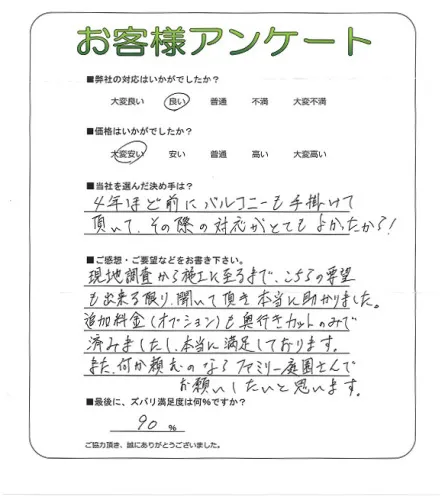 お客様アンケート
■弊社の対応はいかがでしたか?
大変良い 良い 普通 不満 大変不満
■価格はいかがでしたか?
大変安い 安い 普通 高い 大変高い
■当社を選んだ決め手は?
4年ほど前にバルコニーも手掛けて
頂いて、その際の対応がとてもよかたから!
■ご感想・ご要望などをお書き下さい。
現地調査から施工に至るまで、こちらの要望
も出来る限り、聞いて頂き本当に助かりました。
追加料金(オプション)も奥行きカットのみで
済みましたし、本当に満足しております。
また、何か頼むのならファミリー庭園さんで
お願いしたいと思います。
■最後に、ズバリ満足度は何%ですか?
90 %
ご協力頂き、誠にありがとうございました。